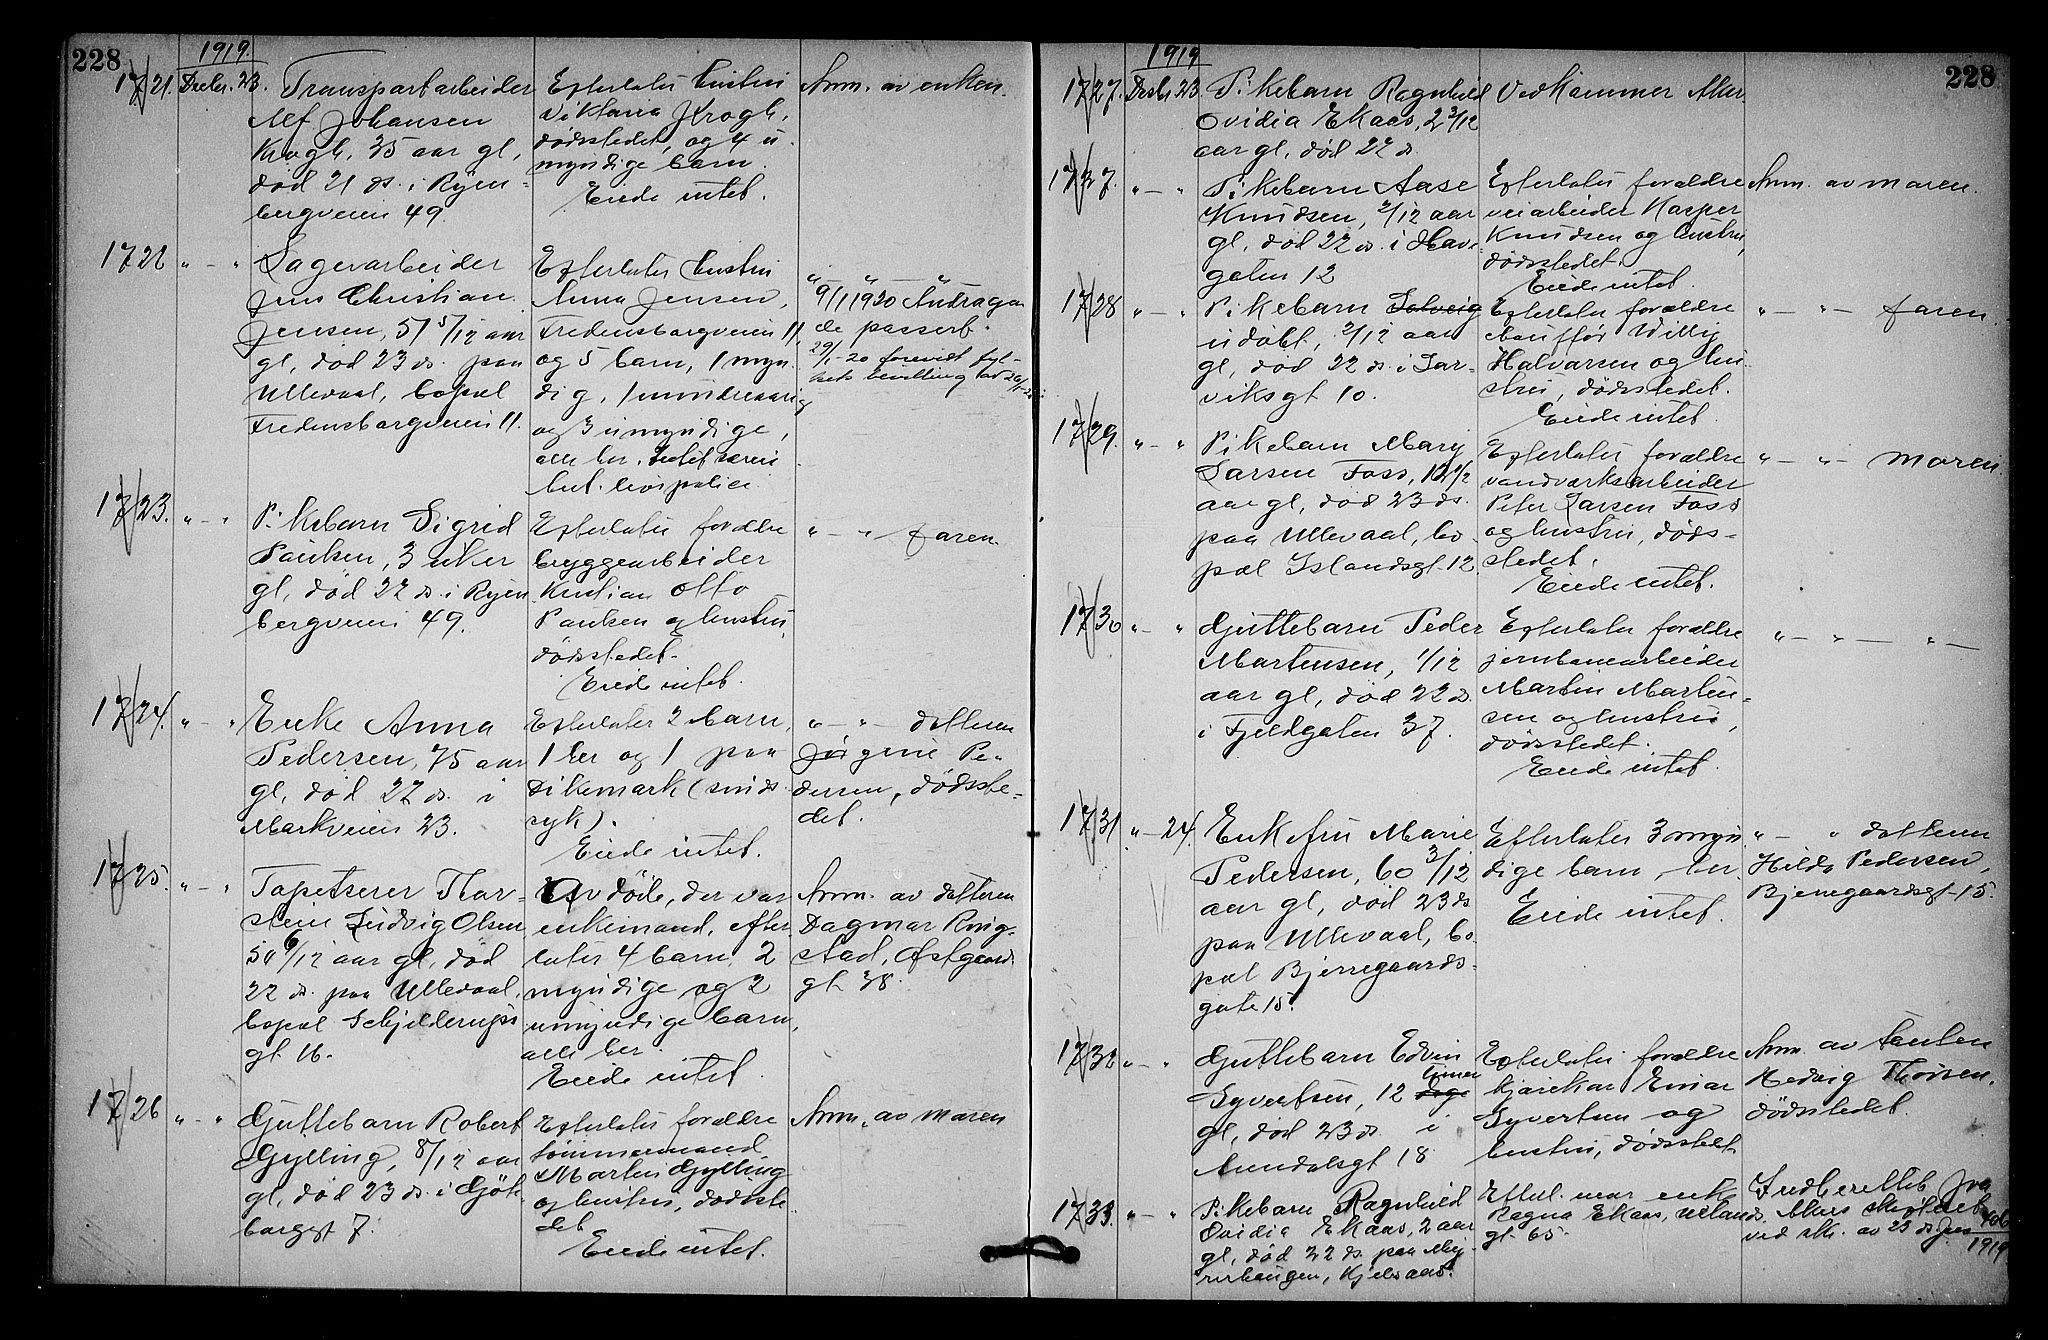 228
1919.
1721. Decbr. 23. Transportarbeider
Alf Johansen
Krogh, 35 aar gl,
død 21 ds. i Ryen-
bergveien 49
Efterlater hustru
Viktoria Krogh,
dødsstedet, og 4 u
myndige barn.
Eiede intet.
Anm. av enken.
1722 " - " Lagerarbeider
Jens Christian
Jensen, 51 5/12 aar
gl, død 23 ds. paa
Ullevaal, bopæl
Fredensborgveien 11.
Efterlater hustru
Anna Jensen,
Fredensborgveien 11,
og 5 barn, 1 myn
dig, 1 mindreaarig
og 3 umyndige,
alle her.
" " "
9/1 1920 Andragen
de passert.
29/1-20 forevist fyl-
kets bevilling av 26/1-20
1723. " - " Pikebarn Sigrid
Paulsen, 3 uker
gl, død 22 ds. i Ryen
bergveien 49.
Efterlater forældre
bryggearbeider
Kristian Otto
Paulsen og hustru,
dødsstedet.
Eiede intet.
" - " faren.
1724. " - " Enke Anna
Pedersen, 75 aar
gl, død 22 ds. i
Markveien 23.
Efterlater 2 barn,
1 her og 1 paa
Dikemark (sinds
syk).
Eiede intet.
" - " datteren
Jørgine Pe-
dersen, dødsste-
det.
1725. " - " Tapetserer Thor-
stein Ludvig Olsen
50 6/12 aar gl, død
22 ds. paa Ullevaal,
bopæl Schjelderups
gt. 16.
Avdøde, der var
enkemand, efter
later 4 barn, 2
myndige og 2
umyndige barn,
alle her.
Eiede intet.
Anm. av datteren
Dagmar Ring-
stad, Østgaards
gt 38.
1726 " - " Guttebarn Robert
Gylling, 8/12 aar
gl, død 23 ds. i Gøte
borggt 7.
Efterlater forældre
tømmermand
Martin Gylling
og hustru, dødsste
det
Eiede intet.
Anm. av moren
228
1919
1727. Decbr 23 Pikebarn Ragnhild
Ovidia Ekaas, 2 3/12
aar gl, død 22 ds
Vedkommer Aker.
1727. " - " Pikebarn Aase
Knudsen, 2/12 aar
gl, død 22 ds. i Have
gaten 12
Efterlater forældre
veiarbeider Kasper
Knudsen og hustru,
dødsstedet.
Eiede intet.
Anm. av moren.
1728 " - " Pikebarn Solveig
udøbt, 2/12 aar
gl, død 22 ds. i Lar-
viksgt 10.
Efterlater forældre
chauffør Willy
Halvorsen og hu
stru, dødsstedet.
Eiede intet.
" - " - faren.
1729. " - " Pikebarn Mary
Larsen Foss, 12 1/2
aar gl, død 23 ds.
paa Ullevaal, bo-
pæl Islandsgt 12
Efterlater forældre
vandværksarbeider
Peter Larsen Foss
og hustru, døds-
stedet.
Eiede intet.
" - " - moren
1730 " - " Guttebarn Peder
Martensen, 1/12
aar gl, død 22 ds.
i Fjeldgaten 37.
Efterlater forældre
jernbanearbeider
Martin Marten-
sen og hustru,
dødsstedet.
Eiede intet.
" - " - " -
1731. " - 24. Enkefru Marie
Pedersen, 60 3/12
aar gl, død 23 ds
paa Ullevaal, bo
pæl Bjerregaards-
gate 15.
Efterlater 3 myn
dige barn, her.
Eiede intet.
" - " datteren
Hilda Pedersen,
Bjerregaardsgt 15.
1732 " - " Guttebarn Edvin
timer
Syvertsen, 12 dage
gl, død 23 ds. i
Arendalsgt 18
Efterlater forældre
kjørekar Einar
Syvertsen og
hustru, dødsstedet
Anm. av tanten
Hedvig Thoresen,
dødsstedet.
1733. " - " Pikebarn Ragnhild
Ovidia Ekaas, 2 aar
gl, død 22 ds. paa Mey
rerhaugen, Kjelsaas.
Efterl. mor enke
Ragna Ekaas, Uelands
gt 65.
Indberettet fra
Akers skifteret
ved skr. av 23 ds.
1919